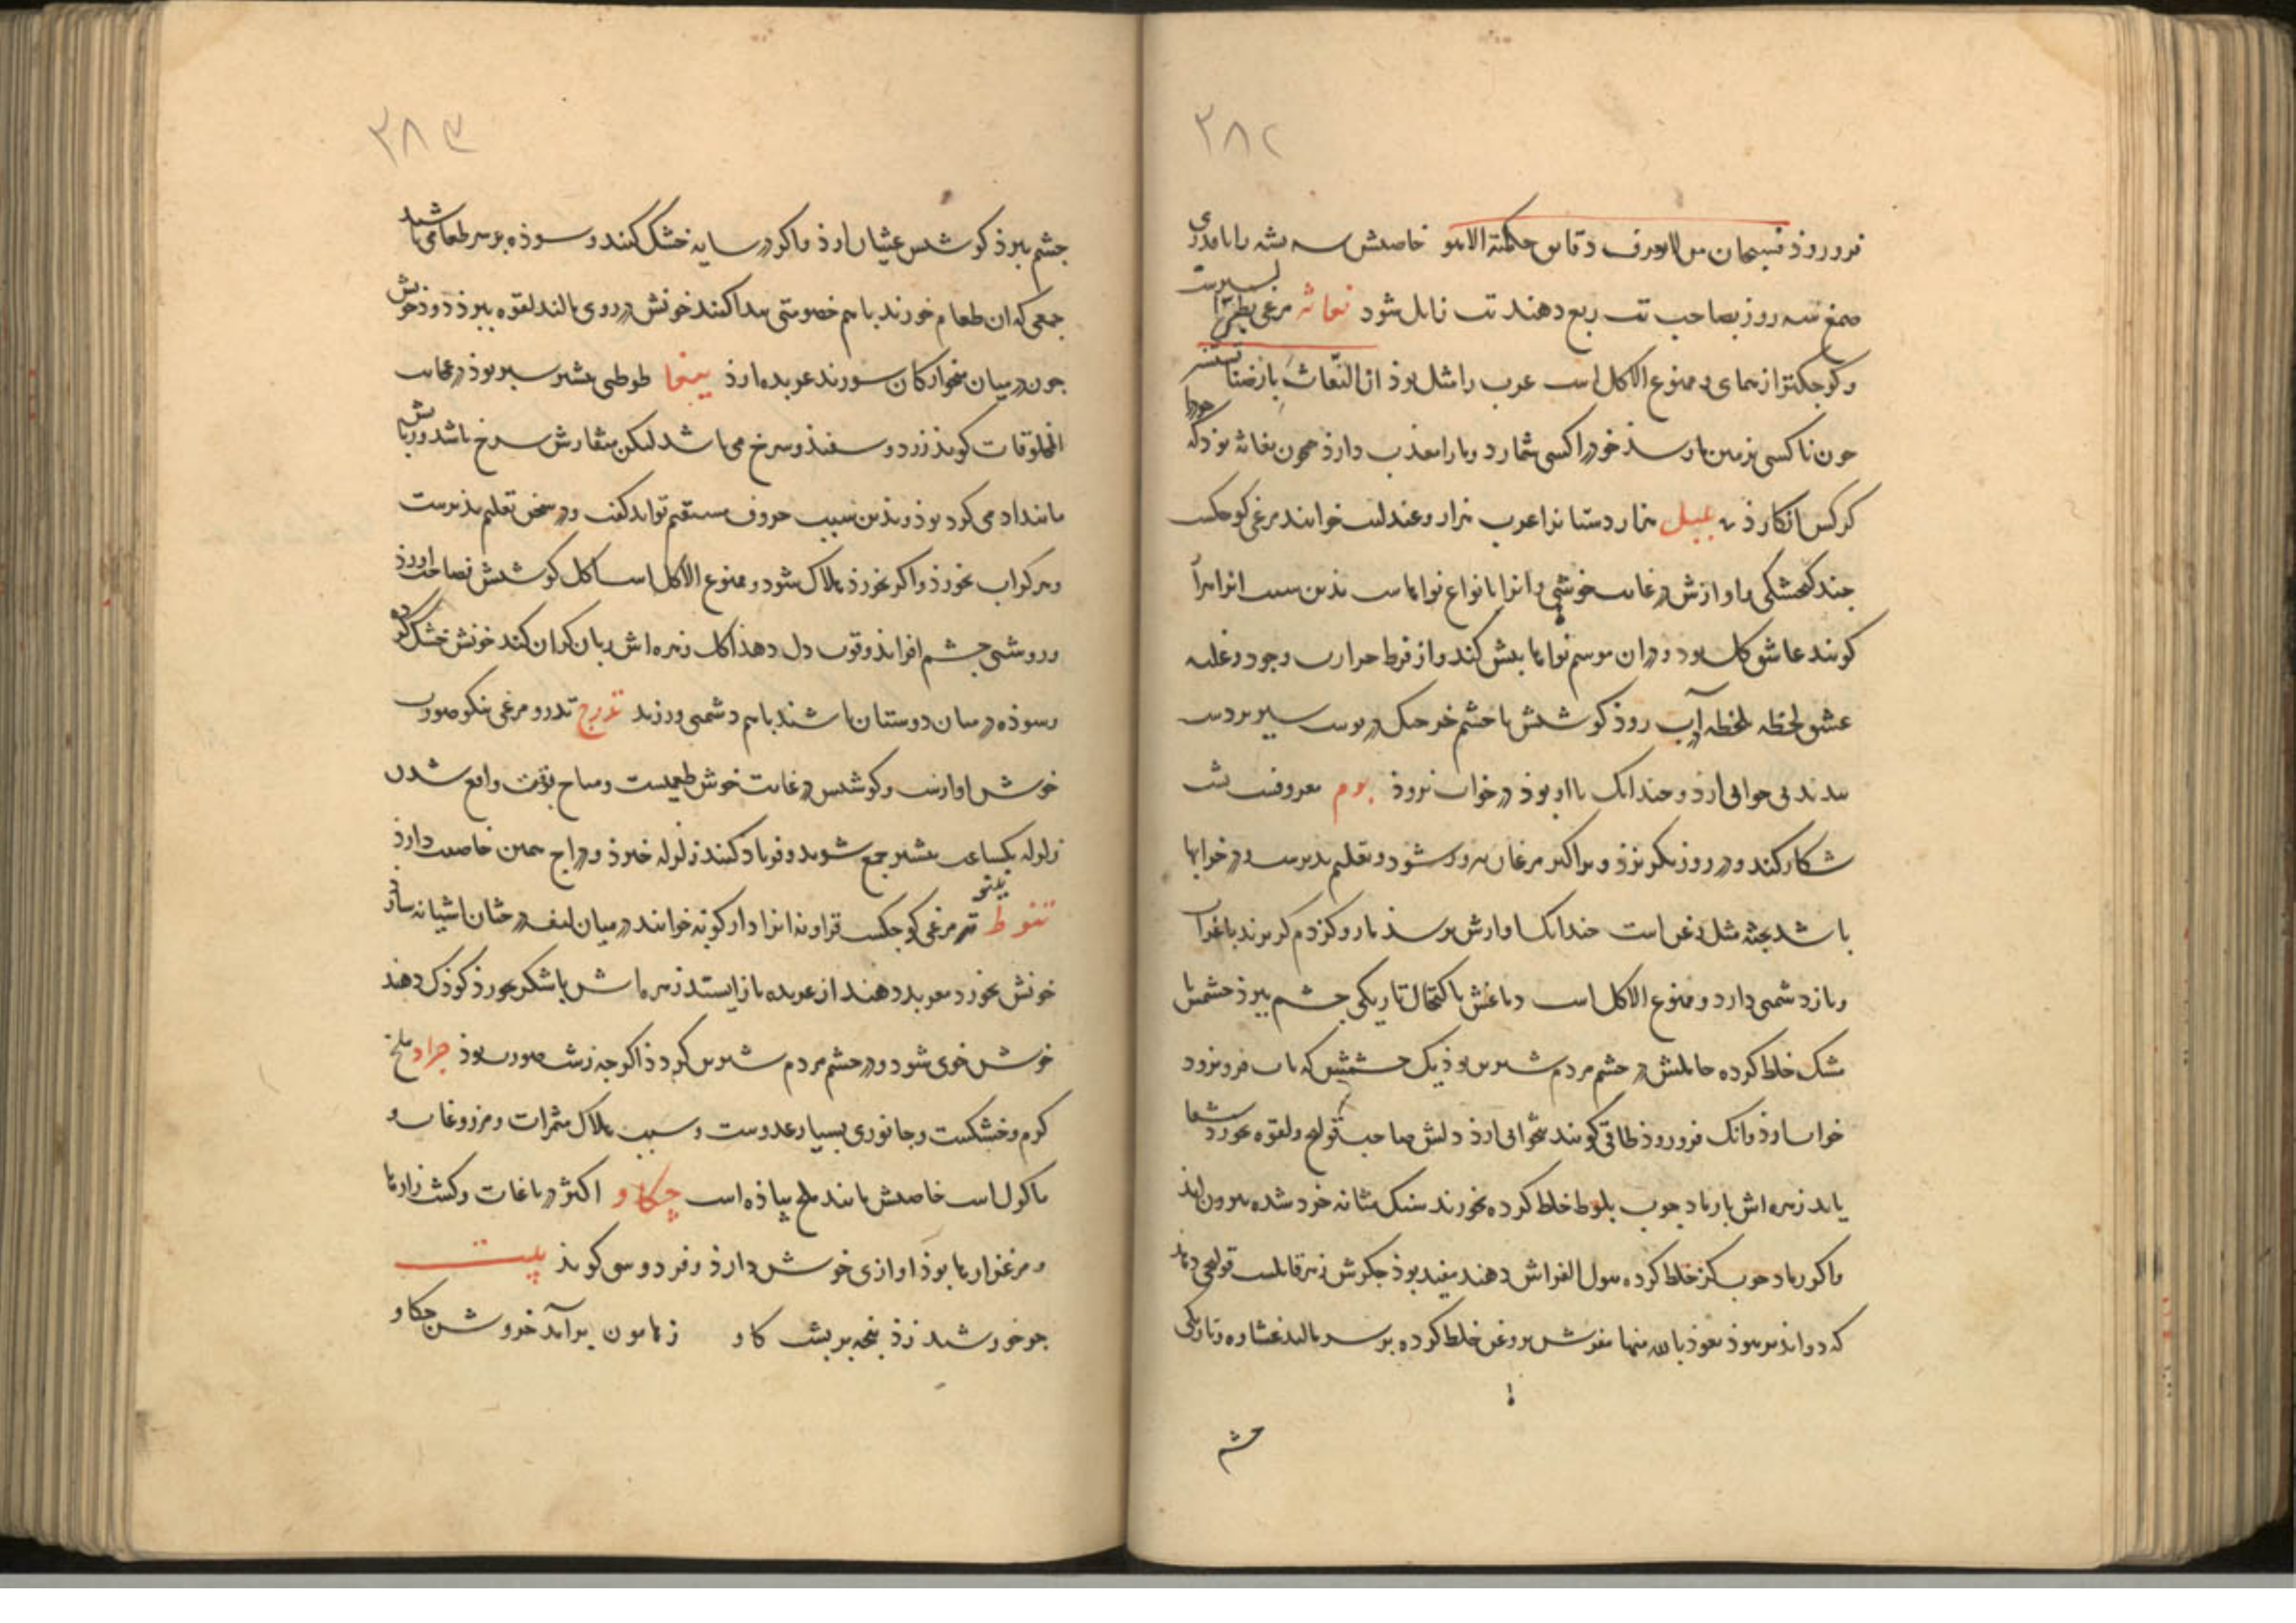 ۳۸۲
فرو روذ فسبحان من لا یعرف دقایق حکمته الا هو خاصیتش سه پشه را با قدری
صمغ سه روز بصاحب تب ربع دهند تب زایل شود بغاثه مرغی بطی‌ء السیرست
و کوجکتر از همای و ممنوع الاکل است عرب را مثل بوذ ان البغاث بارضنا تستنسر
جون ناکسی بزمین ما رسذ خوذ را کسی شمارد و ما را معذب دارذ همچون بغاثه بوذ که خوذ را
کرکس انکارذ بلبل هزار دستانرا عرب هزار و عندلیب خوانند مرغی کوجکست
جند کنجشکی و اوازش در غایت خوشی و انرا بانواع نواهاست بذین سبب انرا هزارآ
کویند عاشق کل بود و در ان موسم نواها بیش کند و از فرط حرارت وجود و غلبه
عشق لحظه لحظه در آب روذ کوشتش با خشم خرجنک در بوست سیر بر دست
بندند بی خوابی آرذ و جندانک با او بوذ در خواب نروذ بوم معروفست بشب
شکار کند و در روز بکم برذ و بر اکثر مرغان سرور شود و تعلیم بذیرست و در خرابها
باشد بجثه مثل زغن است جندانک اوازش برسذ مار و کزدم کریزند با غراب
و باز دشمنی دارد و ممنوع الاکل است دماغش باکتحال تاریکی جشم ببرذ جشمش با
مشک خلط کرده حاملش در چشم مردم شیرین بوذ یک جشمش که بآب فرو نرود
خواب آرذ و آنک فرو روذ طافی کویند بیخوابی آرذ دلش صاحب قولنج و لقوه بخورد شفا
یابد زهره اش با رماد جوب بلوط خلط کرده بخورند سنک مثانه خرد شده بیرون ایذ
و اکر با رماد جوب کز خلط کرده ببول الفراش دهند مفید بوذ جکرش زهر قاتلست قولنجی دهد
که دوا پذیر نبوذ نعوذ بالله منها مغزش بروغن خلط کرده بر سر مالند غشاوه و تاریکی
جشم
۳۸۳
جشم ببرذ کوشتش غثیان آرذ و اکر در سایه خشک کنند و سوذه بر سر طعامی باشند
جمعی که ان طعام خورند با هم خصومتی بیدا کنند خونش در روی مالند لقوه ببرذ دوذ خونش
جون در میان میخوارکان بسوزند عربده آرذ ببغا طوطی بیشتر سبز بوذ در عجایب
المخلوقات کوید زرد و سفید و سرخ می باشد لیکن منقارش سرخ باشد و زبانش
مانند آدمی کرد بوذ و بذین سبب حروف مستقیم تواند کفت و در سخن تعلیم بذیرست
و هرکز آب نخورذ و اکر بخورذ هلاک شود و ممنوع الاکل است اکل کوشتش فصاحت اورذ
و روشنی جشم افزاید و قوت دل دهذ اکل زهره اش زبان کران کند خونش خشک کرده
و سوذه در میان دوستان باشند با هم دشمنی ورزند تدرج تذرو مرغی نیکو صورت
خوش اوازست و کوشتش در غایت خوش طعمیست و مباح بوقت واقع شدن
زلزله بیکساعت بیشتر جمع شوند و فریاد کنند زلزله خیزذ و دراج همین خاصیت دارذ
تنوط تبنو مرغی کوجکست قزاونه انرا دار کوبه خوانند در میان لیف درختان اشیانه سازد
خونش بخورد معربد دهند از عربده باز ایستد زهره اش با شکر بخورذ کوذک دهند
خوش خوی شود و در جشم مردم شیرین کردذ اکرجه زشت صورت بوذ جراد ملخ
کرم و خشکست و جانوری بسیار عدوست و سبب هلاک ثمرات و مزروعات و
ماکول است خاصیتش مانند ملخ پیاذه است چکاو اکثر در باغات و کشت زارها
و مرغزارها بوذ اوازی خوش دارذ و فردوسی کویذ بیت
جو خورشید زذ پنجه بر پشت کاو ز هامون برآمد خروش چکاو